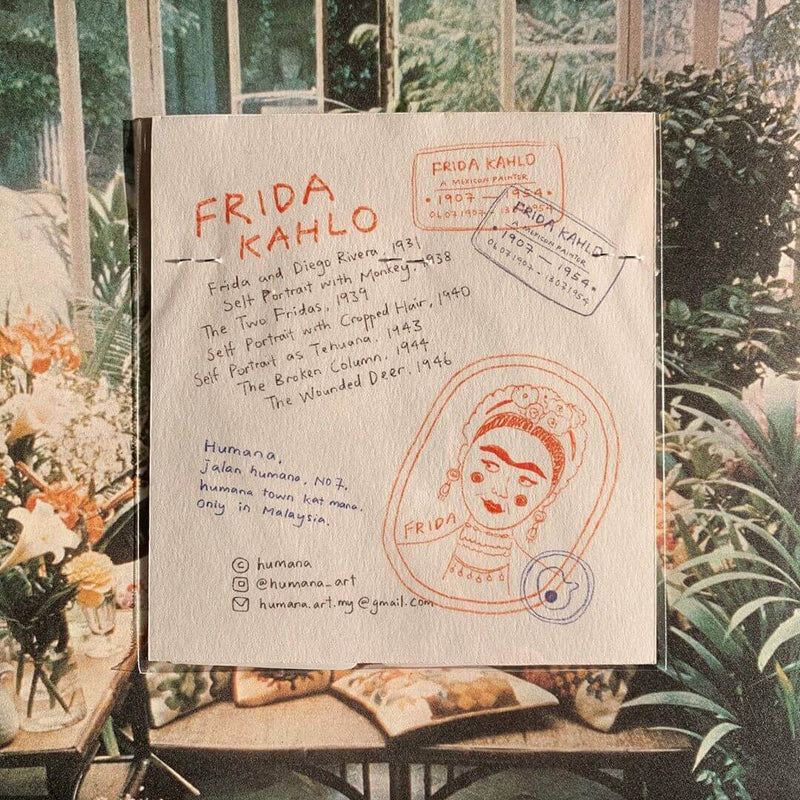 FRIDA
KAHLO
Frida and Diego Rivera, 1931
Self Portrait with Monkey, 1938
The Two Fridas, 1939
Self Portrait with Cropped Hair, 1940
Self Portrait as Tehuana. 1943
The Broken Column. 1944
The Wounded Deer. 1946
FRIDA KAHLO
A MEXICON PAINTER
• 1907 — 1954 •
06.07.1907 - 13.07.1954
FRIDA KAHLO
A MEXICON PAINTER
• 1907 — 1954 •
06071907 - 13071954
Humana,
jalan humana, NO 7,
humana town kat mana.
only in Malaysia.
FRIDA
© humana
@humana_art
humana.art.my@gmail.com